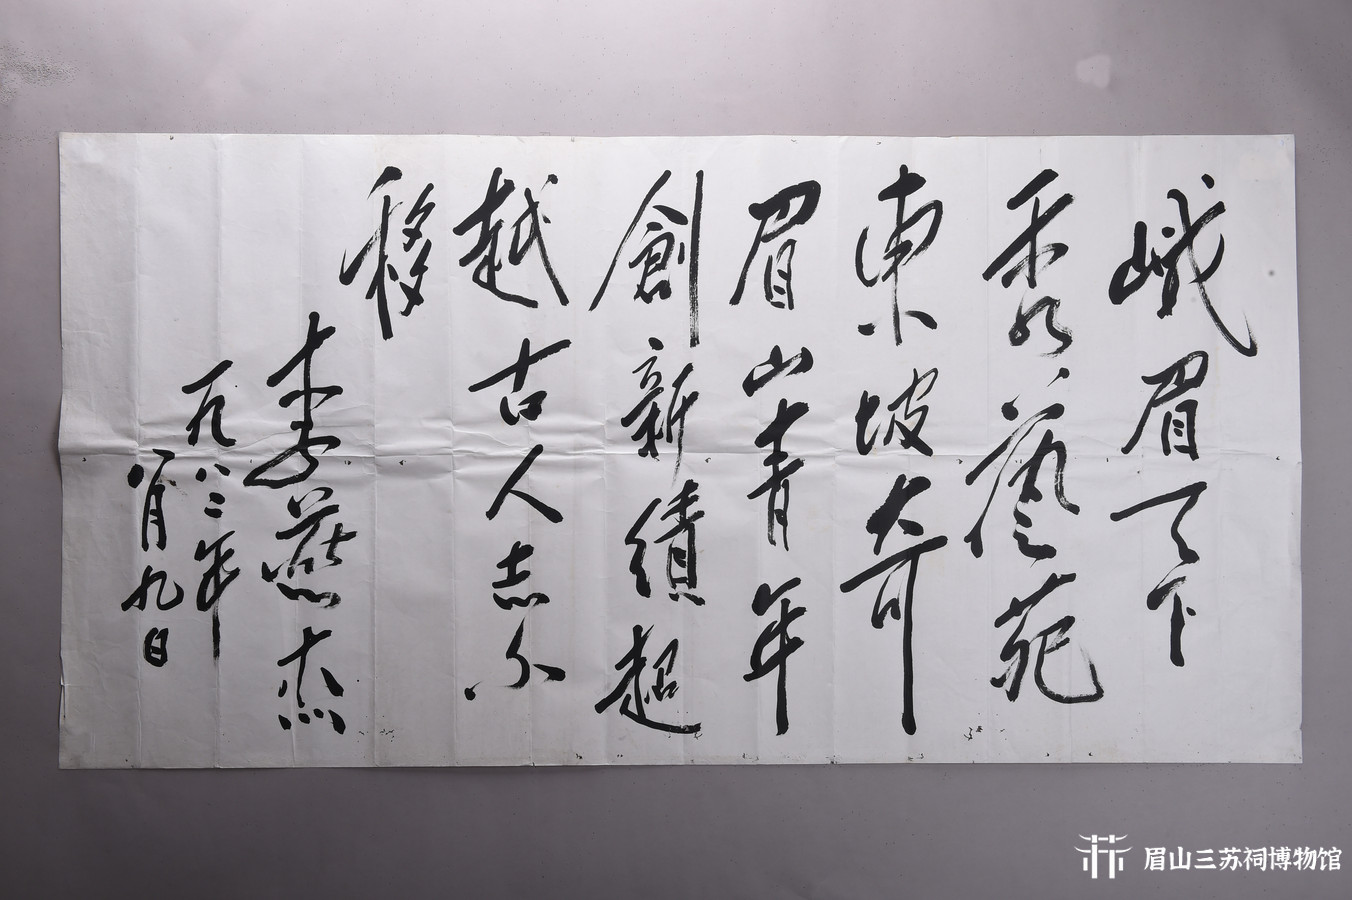 峨眉天下
秀藝苑
東坡奇
眉山青年
創新績超
越古人志不
移
李燕杰
一九八二年
八月九日
眉山三苏祠博物馆